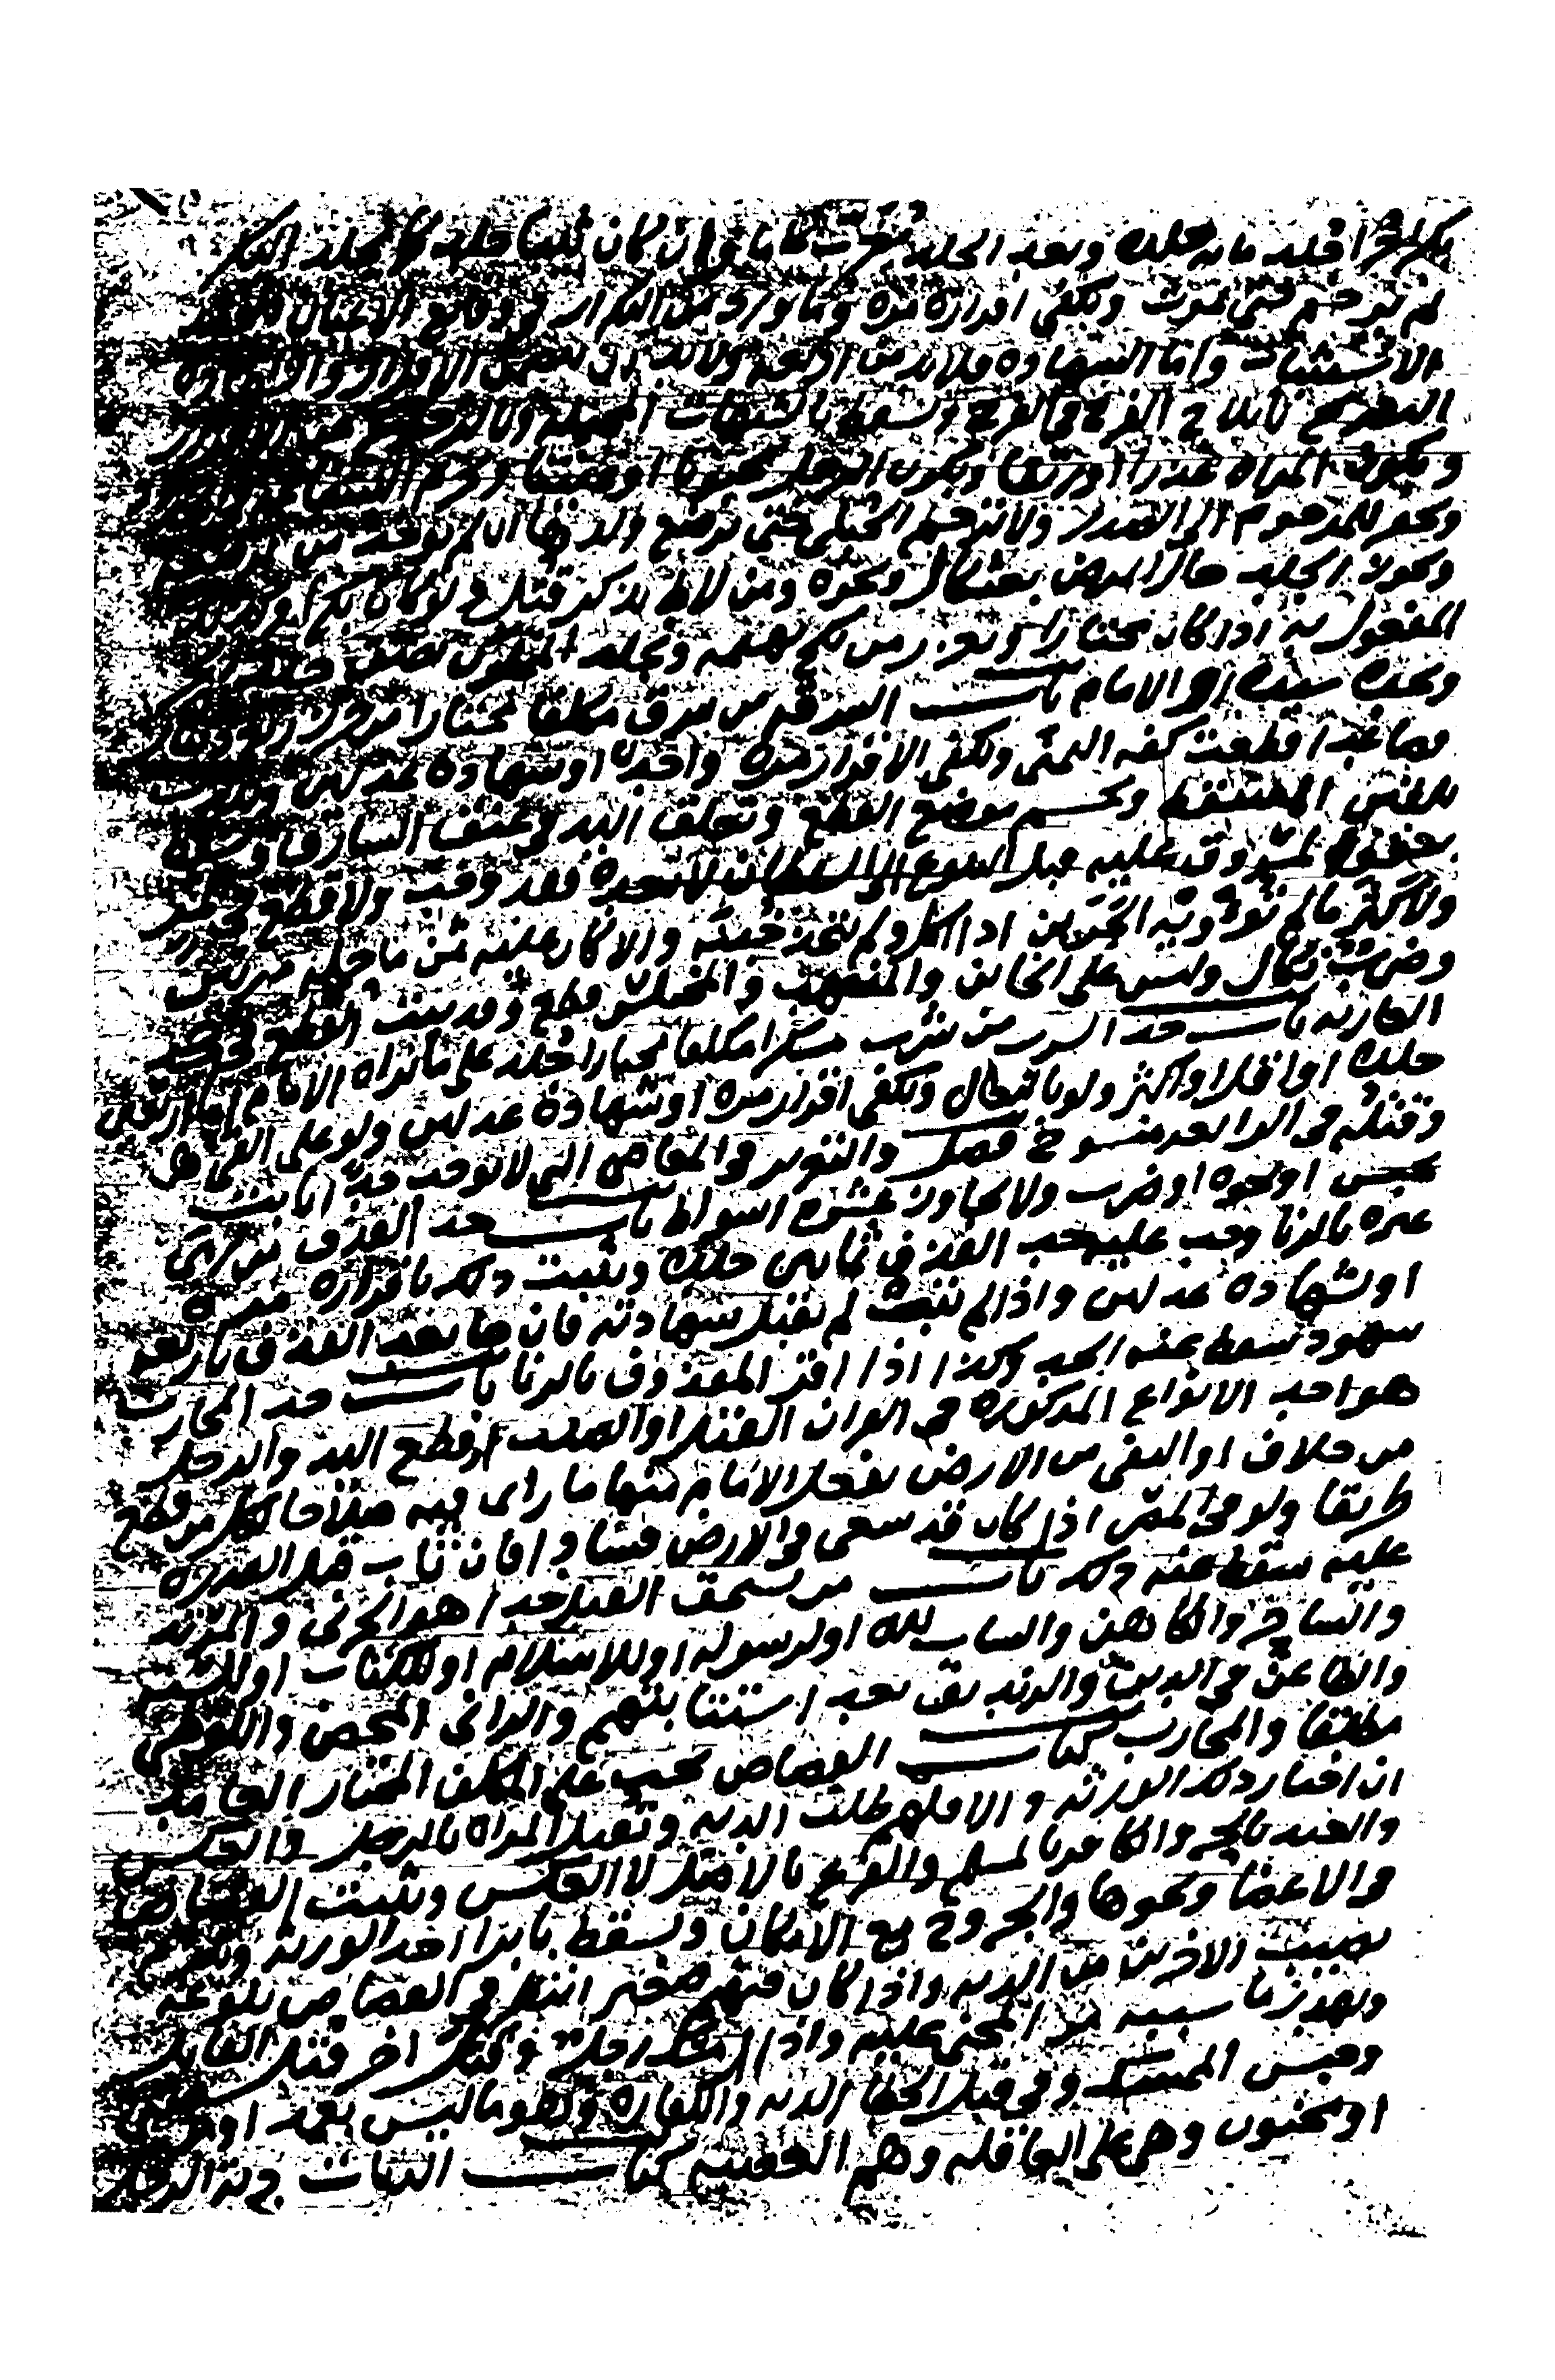 بكرا حرا جلد مائة جلدة وبعد الجلد يغرب عاما وان كان ثيبا جلد كما يجلد البكر
ثم يرجم حتى يموت ويكفي اقراره مرة وما ورد من التكرار في وقايع الاعيان فلقصد
الاستثبات واما الشهادة فلا بد من اربعة ولا بد ان يتضمن الاقرار والشهادة
التصريح بايلاج الفرج في الفرج ويسقط بالشبهات المحتملة وبالرجوع عن الاقرار
وبكون المراة عذرا او رتقا وبكون الرجل مجبوبا او عنينا وتحرم الشفاعة في الحدود
ويحفر للمرجوم الى الصدر ولا ترجم الحبلى حتى ترضع ولدها ان لم يوجد من يرضعه
ويجوز الجلد حال المرض بعثكال ونحوه ومن لاط بذكر قتل ولو كان بكرا وكذلك
المفعول به اذا كان مختارا ويعزر من نكح بهيمة ويجلد المملوك نصف جلد الحر
ويحده سيده او الامام باب السرقة من سرق مكلفا مختارا من حرز ربع دينار
فصاعدا قطعت كفه اليمنى ويكفي الاقرار مرة واحدة او شهادة عدلين ويندب
تلقين المسقط ويحسم موضع القطع وتعلق اليد في عنق السارق ويسقط
بعفو المسروق عليه قبل البلوغ الى السلطان لا بعده فقد وجب ولا قطع في ثمر
ولا كثر ما لم يؤويه الجرين اذا اكل ولم يتخذ خبنة والا كان عليه ثمن ما حمله مرتين
وضرب نكال وليس على الخاين والمنتهب والمختلس قطع وقد ثبت القطع في جحد
العارية باب حد الشرب من شرب مسكرا مكلفا مختارا جلد على ما يراه الامام اما اربعين
جلدة او اقل او اكثر ولو بالنعال ويكفي اقرار مرة او شهادة عدلين ولو على القي
وقتله في الرابعة منسوخ فصل والتعزير في المعاصي التي لا توجب حدا ثابت
بحبس او نحوه او ضرب ولا يجاوز عشرة اسواط باب حد القذف من رمى
غيره بالزنا وجب عليه حد القذف ثمانين جلدة ويثبت ذلك باقراره مرة
او بشهادة عدلين واذا لم يتب لم تقبل شهادته فان جا بعد القذف باربعة
شهود سقط عنه الحد وكذا اذا اقر المقذوف بالزنا باب حد المحارب
هو احد الانواع المذكورة في القران القتل او الصلب او قطع اليد والرجل
من خلاف او النفي من الارض يفعل الامام منها ما راى فيه صلاحا لكل من قطع
طريقا ولو في المصر اذا كان قد سعى في الارض فسادا فان تاب قبل القدرة
عليه سقط عنه ذلك باب من يستحق القتل حدا هو الحربي والمرتد
والساحر والكاهن والساب لله او لرسوله او للاسلام او للكتاب او للسنة
والطاعن في الدين والزنديق بعد استتابتهم والزاني المحصن واللوطي
مطلقا والمحارب كتاب القصاص يجب على المكلف المختار العامد
ان اختار ذلك الورثة والا فلهم طلب الدية وتقتل المراة بالرجل والعكس
والعبد بالحر والكافر بالمسلم والفرع بالاصل لا العكس ويثبت القصاص
في الاعضا ونحوها والجروح مع الامكان ويسقط بابرا احد الورثة ويلزم
نصيب الاخرين من الدية واذا كان فيهم صغير انتظر في القصاص بلوغه
ويهدر ما سببه من المجني عليه واذا امسك رجل وقتل اخر قتل القاتل
وحبس الممسك وفي قتل الخطا الدية والكفارة وهو ما ليس بعمد او من صبي
او مجنون وهي على العاقلة وهم العصبة كتاب الديات دية الرجل